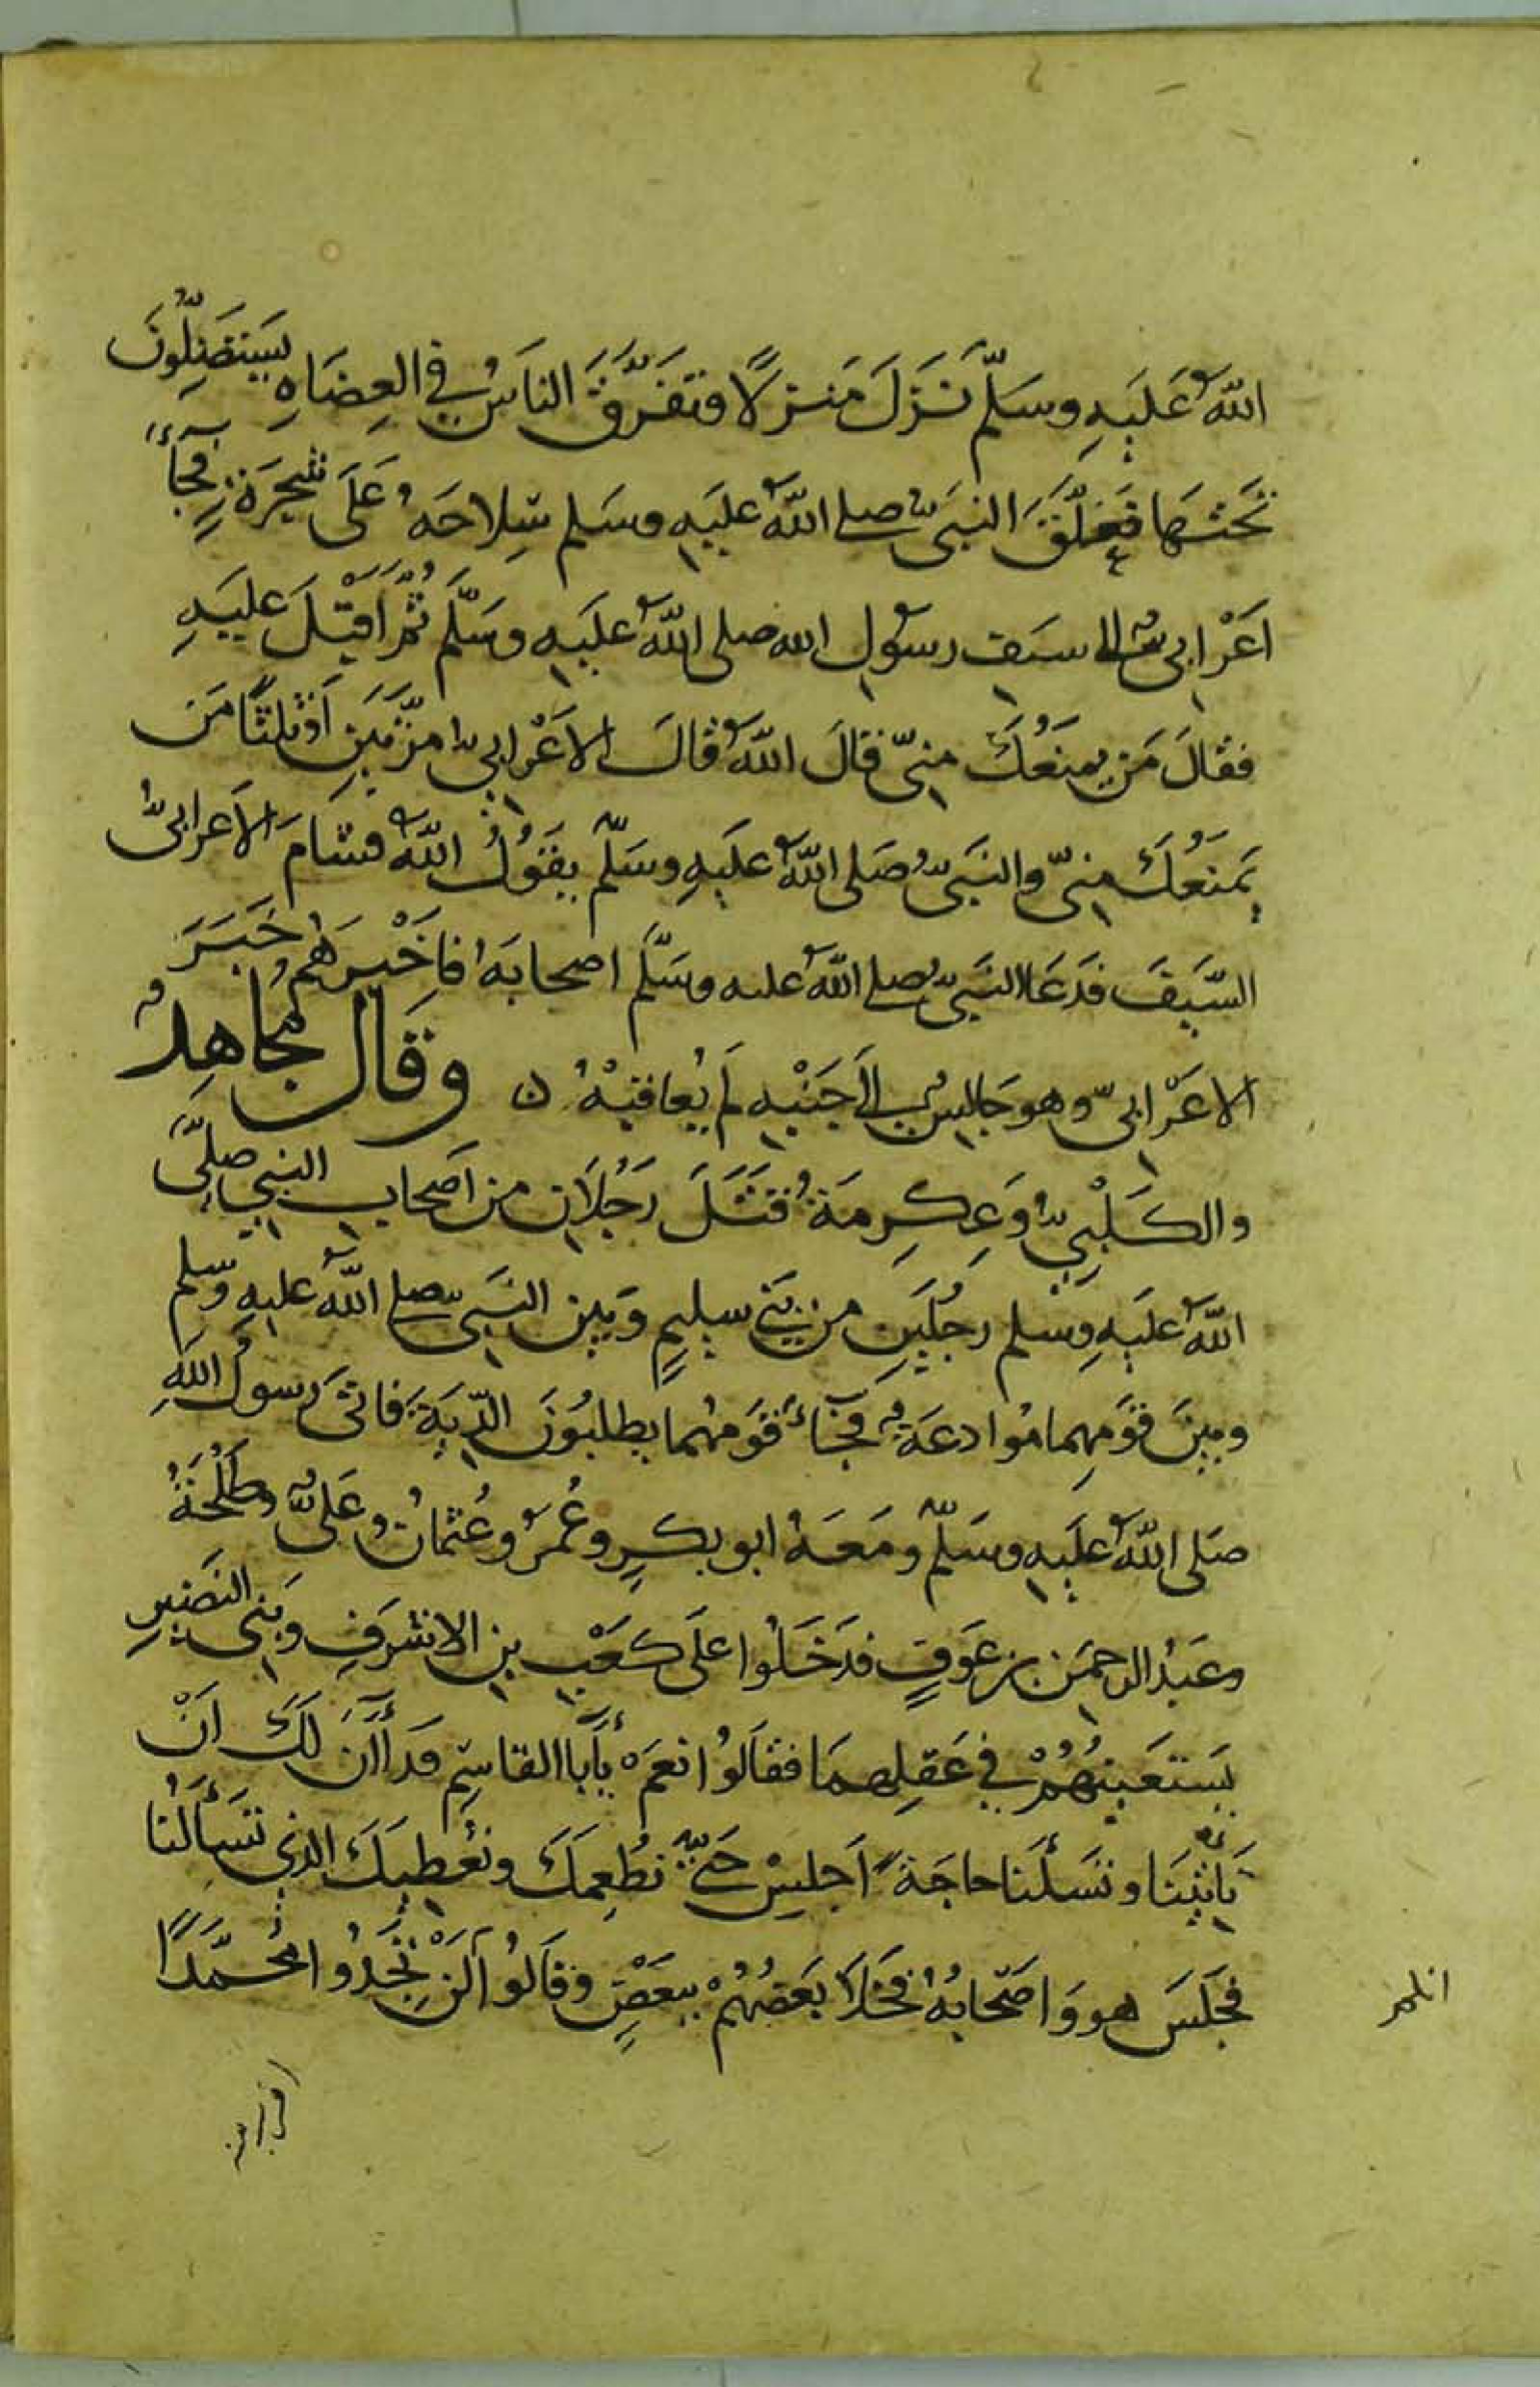 اللهُ عَلَيهِ وسَلّم نَزَلَ مَنزلًا فتَفَرَّقَ الناسُ في العِضَاهِ يَستَظِلُّونَ
تَحتَها فَعَلَّقَ النبَيُّ صلى اللهُ عليهِ وسَلم سِلاحَهُ عَلَى شَجَرَةٍ فجَآءَ
اَعْرابيٌّ الى سَيف رسولِ الله صلى اللهُ علَيهِ وسَلَّم ثُمَّ اَقبَلَ علَيهِ
فقالَ مَن يمنَعُكَ مِنيّ قالَ اللهُ قالَ الاَعْرابيُّ مرَّتَينِ اَوثلثًا مَن
يَمنَعُكَ مِنيّ والنبَيُّ صَلى اللهُ علَيهِ وسَلّم يقَوُلُ اللهُ فشَامَ الاَعرابيُّ
السَّيفَ فدَعَا النبَيُّ صلى اللهُ عليه وسَلّم اصحابَهُ فاَخْبرَهُم خَبَرَ
الاعْرابيّ وهو جَالِسٌ الى جَنْبِهِ لَم يُعاقِبْهُ ن وقَال مُجاهِدٌ
والكَلْبيُّ وَعِكرِمَةُ قتَلَ رَجُلاَنِ من اَصحابِ النبيِ صلىَّ
اللهُ علَيهِ وسَلم رجُلَينِ من بَني سليمٍ وَبَين النبَيّ صلى اللهُ عليهِ وسلم
وبينَ قوَمِهِما مُوادعَةٌ فجَآءَ قوَمُهُما يطلبُونَ الدّيةَ فاتى رسولُ اللهِ
صَلى اللهُ علَيهِ وسَلّم ومَعَهُ ابو بكرٍ وعُمَرُ وعُثمانُ وعَليٌّ وطَلْحَةُ
وعَبدُ الرحمَن بن عَوفٍ فدَخَلُوا علَى كَعْبِ بنِ الاشرَفِ وبَني النضَيرِ
يَستعَينُهُمْ في عَقلِهمَا فقالَوُا نعَمْ يأبَا القاسِم قدَ أَانَ لكَ اَنْ
تَأتيَنا وتسَئَلَنا حاجَةً اَجلِسْ حتّى نُطعِمَكَ ونعُطيَكَ الذي تسَأَلُنا
فجَلسَ هو وَاصَحابُهُ فخَلاَ بعَضُهُمْ ببعَضٍ وقالَوُا لَن تجَدوُا محُمَّدًا